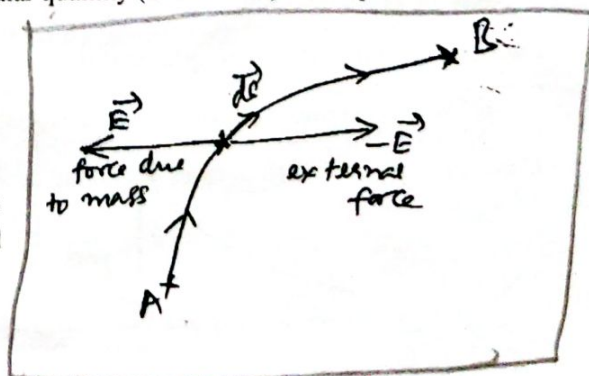 B
d⃗s
E⃗
−E⃗
force due
to mass
external
force
A